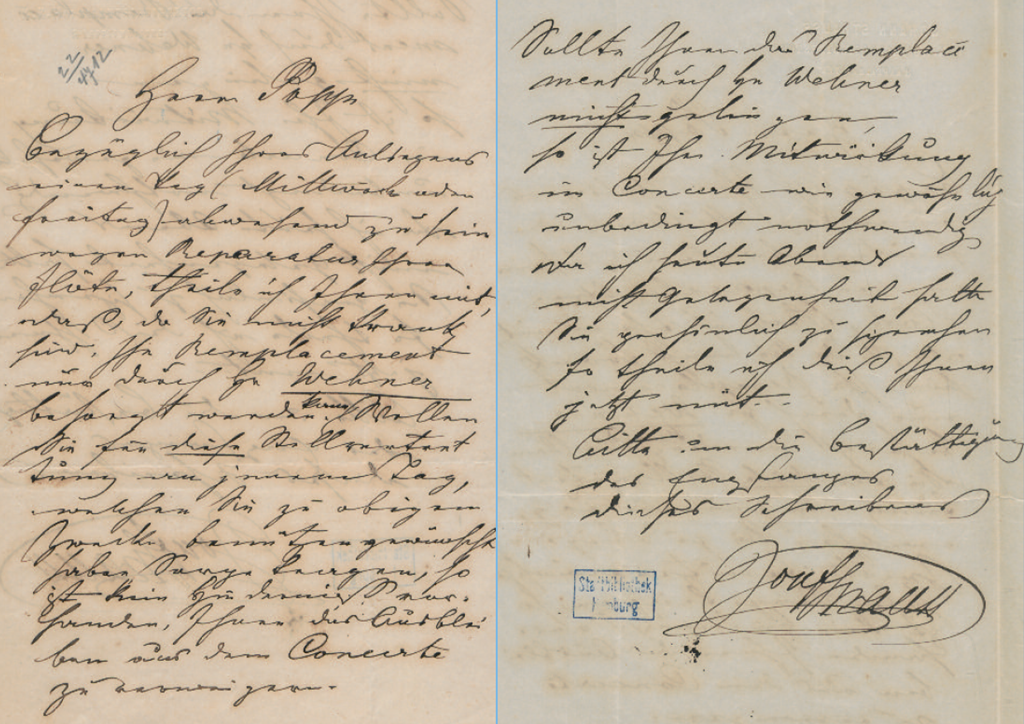 22
4712
Herrn Popp
Bezüglich Ihres Anliegens
einen Tag (Mittwoch oder
Freitag) abwesend zu sein
wegen Reparatur Ihrer
Flöte, theile ich Ihnen mit,
daß, da Sie nicht krank
sind, Ihr Remplacement
nur durch Hr Wehner
besorgt werden kann. Wollen
Sie für diese Stellvertret
tung an jenem Tag,
welchen Sie zu obigem
Zwecke benützen gewünscht
haben Sorge tragen, so
ist kein Hinderniß vor-
handen, Ihnen das Ausblei
ben aus dem Concerte
zu verweigern.
Sollte Ihnen das Remplace
ment durch Hr Wehner
nicht gelingen,
so ist Ihre Mitwirkung
im Concerte wie gewöhnlich
unbedingt nothwendig
Da ich heute Abends
nicht Gelegenheit hatte
Sie persönlich zu sprechen
so theile ich dieß Ihnen
jetzt mit.
Bitte um die Bestättigung
des Empfanges
dieses Schreibens
Stadtbibliothek
Hamburg